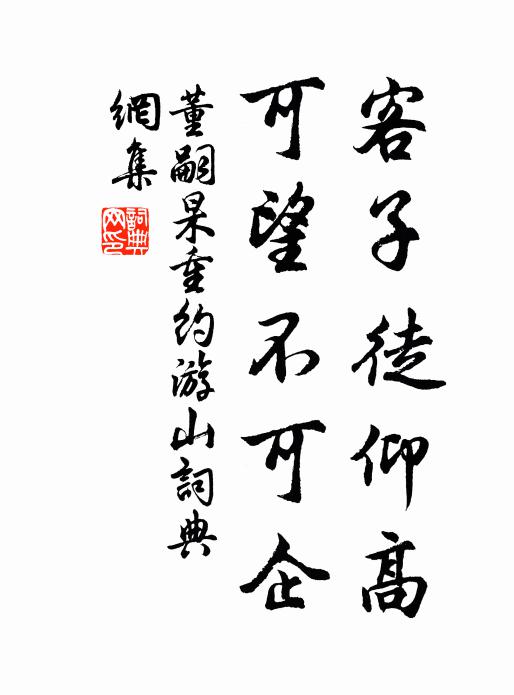 客子徒仰高
可望不可企
董嗣杲重約游山詞典
網集
詞典
网印